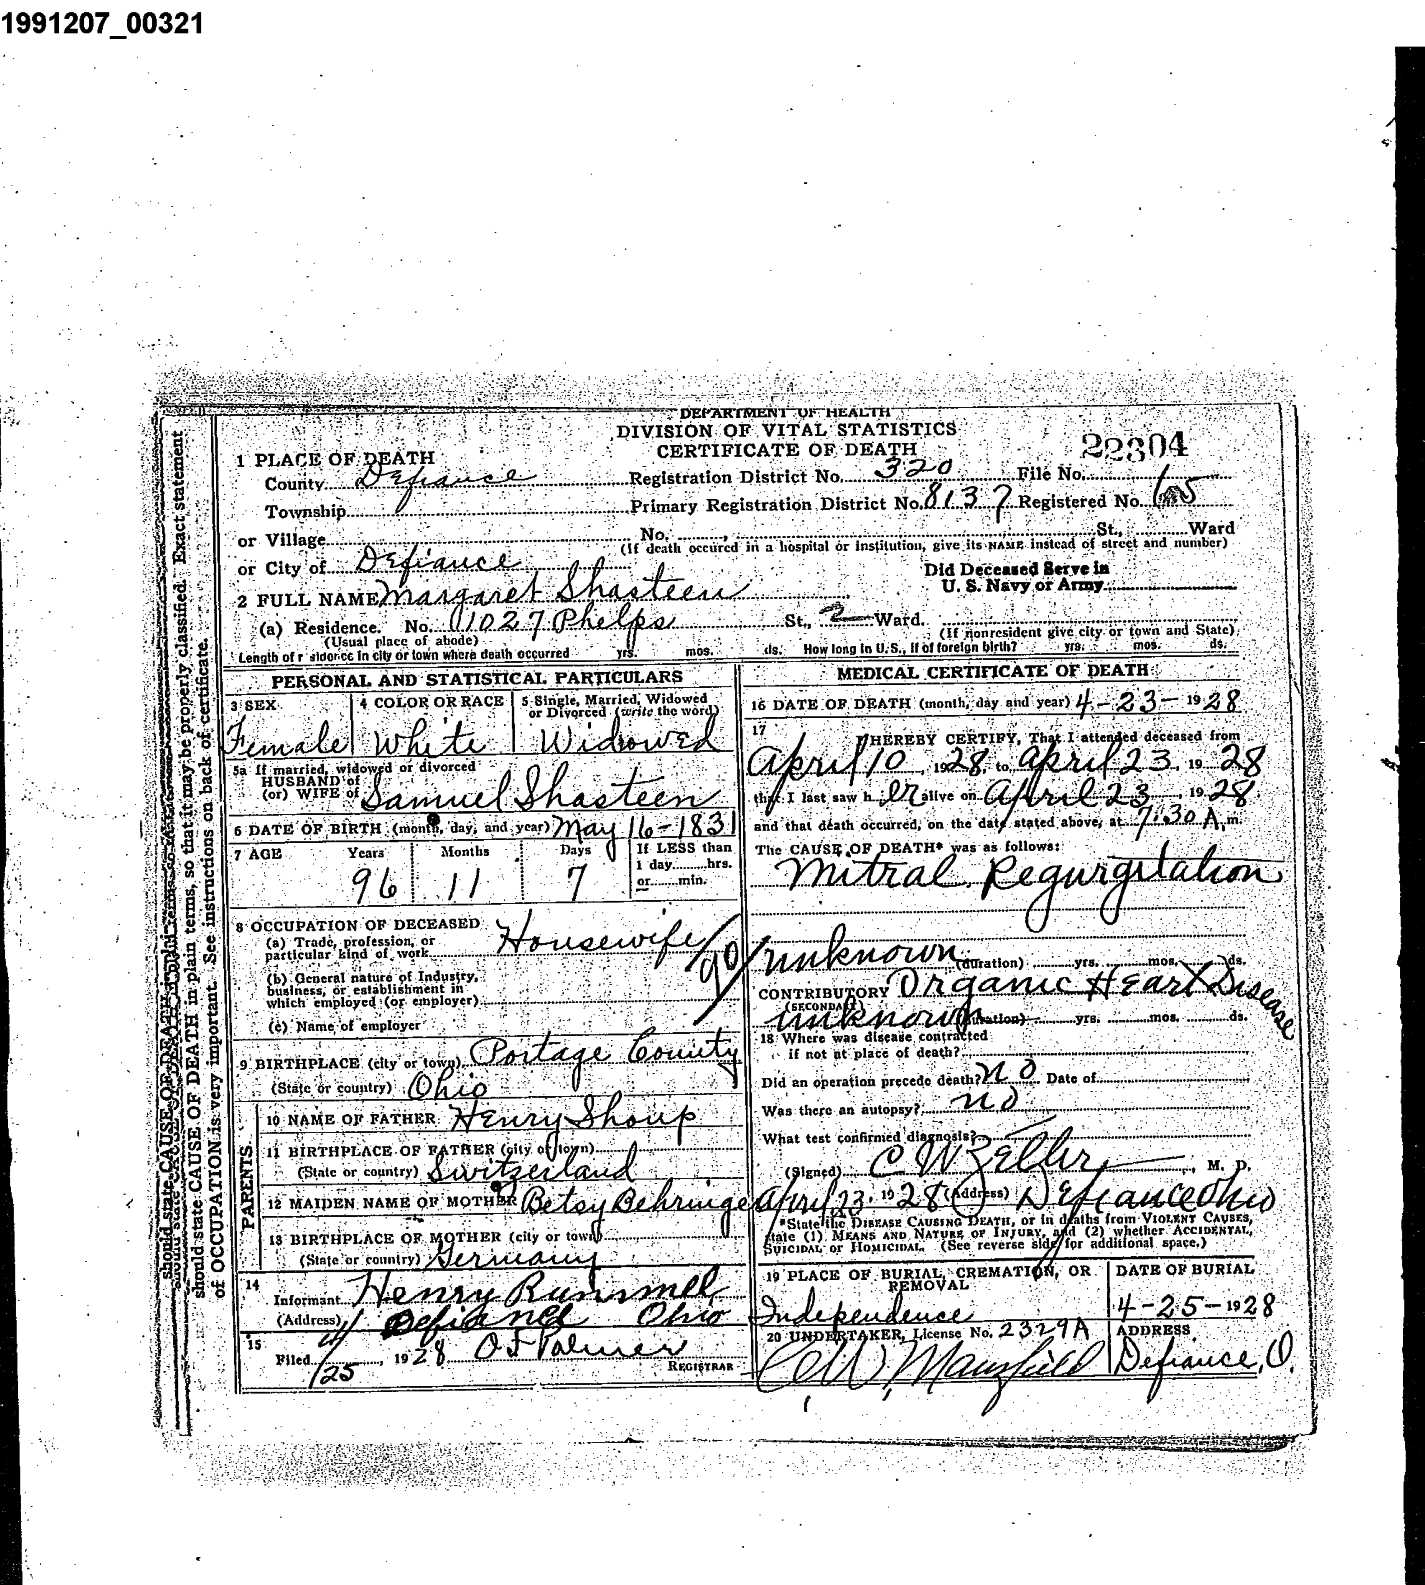 1991207_00321
DEPARTMENT OF HEALTH
DIVISION OF VITAL STATISTICS
CERTIFICATE OF DEATH
22304
1 PLACE OF DEATH
County Defiance Registration District No. 320 File No.
Township Primary Registration District No. 8137 Registered No.
or Village No. St., Ward
(If death occured in a hospital or institution, give its NAME instead of street and number)
or City of Defiance
Did Deceased Serve in
U. S. Navy or Army
2 FULL NAME Margaret Shasteen
(a) Residence. No. 1027 Phelps St., 2 Ward.
(Usual place of abode) (If nonresident give city or town and State)
Length of residence in city or town where death occurred yrs. mos. ds. How long in U.S., if of foreign birth? yrs. mos. ds.
PERSONAL AND STATISTICAL PARTICULARS
3 SEX 4 COLOR OR RACE 5 Single, Married, Widowed
or Divorced (write the word)
Female White Widowed
5a If married, widowed or divorced
HUSBAND of
(or) WIFE of Samuel Shasteen
6 DATE OF BIRTH (month, day, and year) May 16-1831
7 AGE Years Months Days If LESS than
1 day hrs.
or min.
96 11 7
8 OCCUPATION OF DECEASED
(a) Trade, profession, or
particular kind of work Housewife
(b) General nature of Industry,
business, or establishment in
which employed (or employer)
(c) Name of employer
9 BIRTHPLACE (city or town) Portage County
(State or country) Ohio
PARENTS
10 NAME OF FATHER Henry Shoup
11 BIRTHPLACE OF FATHER (city or town)
(State or country) Switzerland
12 MAIDEN NAME OF MOTHER Betsy Behringer
13 BIRTHPLACE OF MOTHER (city or town)
(State or country) Germany
14
Informant Henry
(Address) Defiance Ohio
15
Filed 4/25, 1928 O F Palmer
REGISTRAR
MEDICAL CERTIFICATE OF DEATH
16 DATE OF DEATH (month, day and year) 4-23-1928
17
I HEREBY CERTIFY, That I attended deceased from
April 10, 1928, to April 23, 1928
that I last saw her alive on April 23, 1928
and that death occurred, on the date stated above, at 7:30 A. m.
The CAUSE OF DEATH* was as follows:
Mitral Regurgitation
90
unknown (duration) yrs. mos. ds.
CONTRIBUTORY Organic Heart Disease
(SECONDARY)
unknown (duration) yrs. mos. ds.
18 Where was disease contracted
if not at place of death?
Did an operation precede death? no Date of
Was there an autopsy? no
What test confirmed diagnosis?
(Signed) C W Zeller, M. D.
April 23, 1928 (Address) Defiance Ohio
*State the DISEASE CAUSING DEATH, or in deaths from VIOLENT CAUSES,
state (1) MEANS AND NATURE OF INJURY, and (2) whether ACCIDENTAL,
SUICIDAL or HOMICIDAL. (See reverse side for additional space.)
19 PLACE OF BURIAL, CREMATION, OR
REMOVAL
Independence
DATE OF BURIAL
4-25-1928
20 UNDERTAKER, License No. 2329A
Mansfield
ADDRESS
Defiance, O.
should state CAUSE OF DEATH in plain terms, so that it may be properly classified. Exact statement
of OCCUPATION is very important. See instructions on back of certificate.